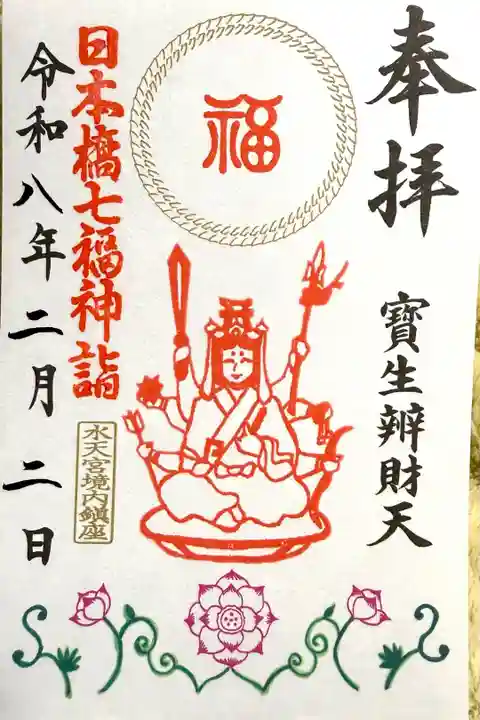 奉拝
寶生辨財天
福
日本橋七福神詣
水天宮境内鎮座
令和八年二月二日